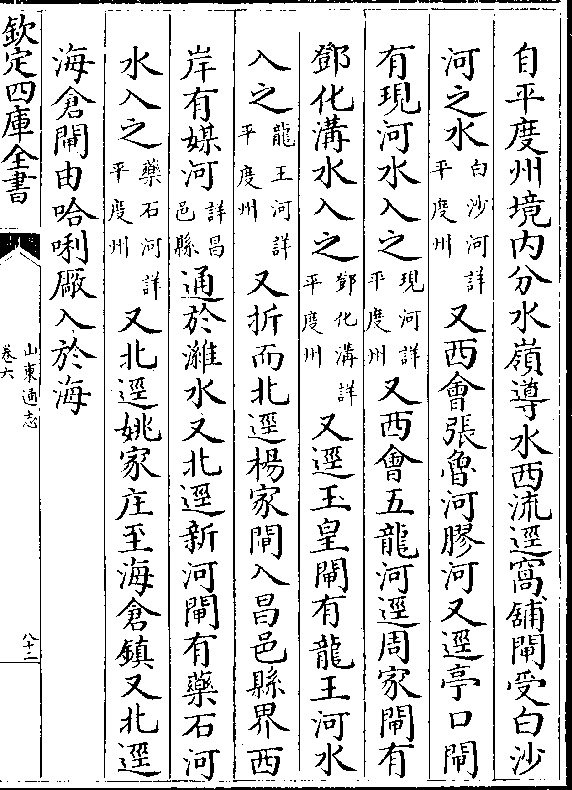 自平度州境内分水嶺導水西流逕窩舖閘受白沙
河之水白沙河詳平度州又西會張魯河膠河又逕亭口閘
有現河水入之現河詳平度州又西會五龍河逕周家閘有
鄧化溝水入之鄧化溝詳平度州又逕玉皇閘有龍王河水
入之龍王河詳平度州又折而北逕楊家閘入昌邑縣界西
岸有媒河詳昌邑縣通於濰水又北逕新河閘有藥石河
水入之藥石河詳平度州又北逕姚家庄至海倉鎮又北逕
海倉閘由哈唎厫入於海
欽定四庫全書
山東通志
卷六
八十二